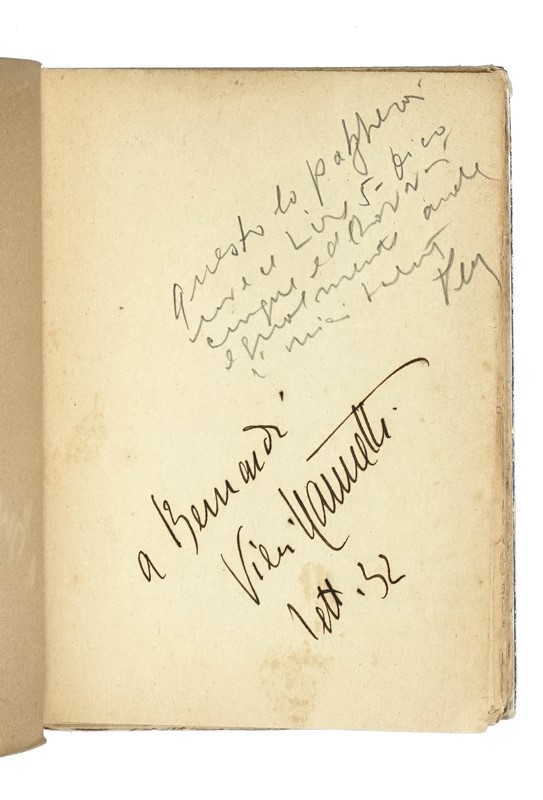 Questo lo pagherai
invece Lire 5 - Dico
cinque ed avrai
egualmente anche
i miei saluti
a Bernardi
Vieri Nannetti.
Sett. 32